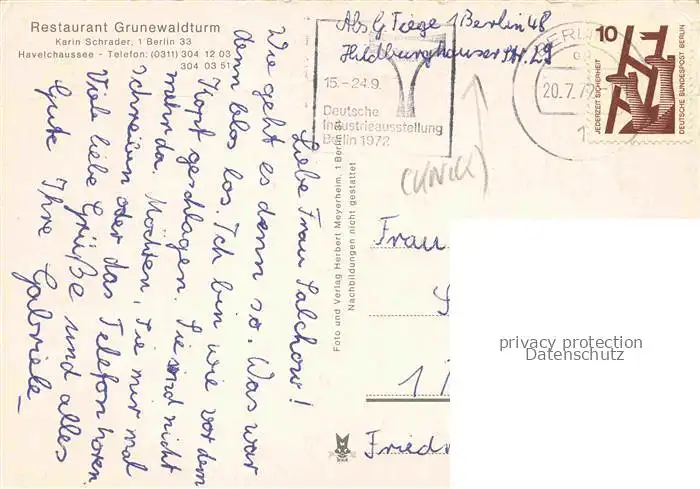 Restaurant Grunewaldturm
Karin Schrader, 1 Berlin 33
Havelchaussee - Telefon: (0311) 304 12 03
304 03 51
Liebe Frau Salchow!
Wie geht es denn so. Was war
denn blos los. Ich bin wie vor dem
Kopf geschlagen. Sie sind nicht
mehr da. Möchten Sie mir mal
schreiben oder das Telefon hören
Viele liebe Grüße und alles
Gute Ihre Gabriele
Foto und Verlag Herbert Meyerheim, 1 Berlin
Nachbildungen nicht gestattet
Abs G Tiege 1 Berlin 48
Hildburghauser Str. 29
15.-24.9.
Deutsche
Industrieausstellung
Berlin 1972
BERLIN
20.7.72
1
10
JEDERZEIT SICHERHEIT
DEUTSCHE BUNDESPOST BERLIN
Frau
1
Friedr
privacy protection
Datenschutz